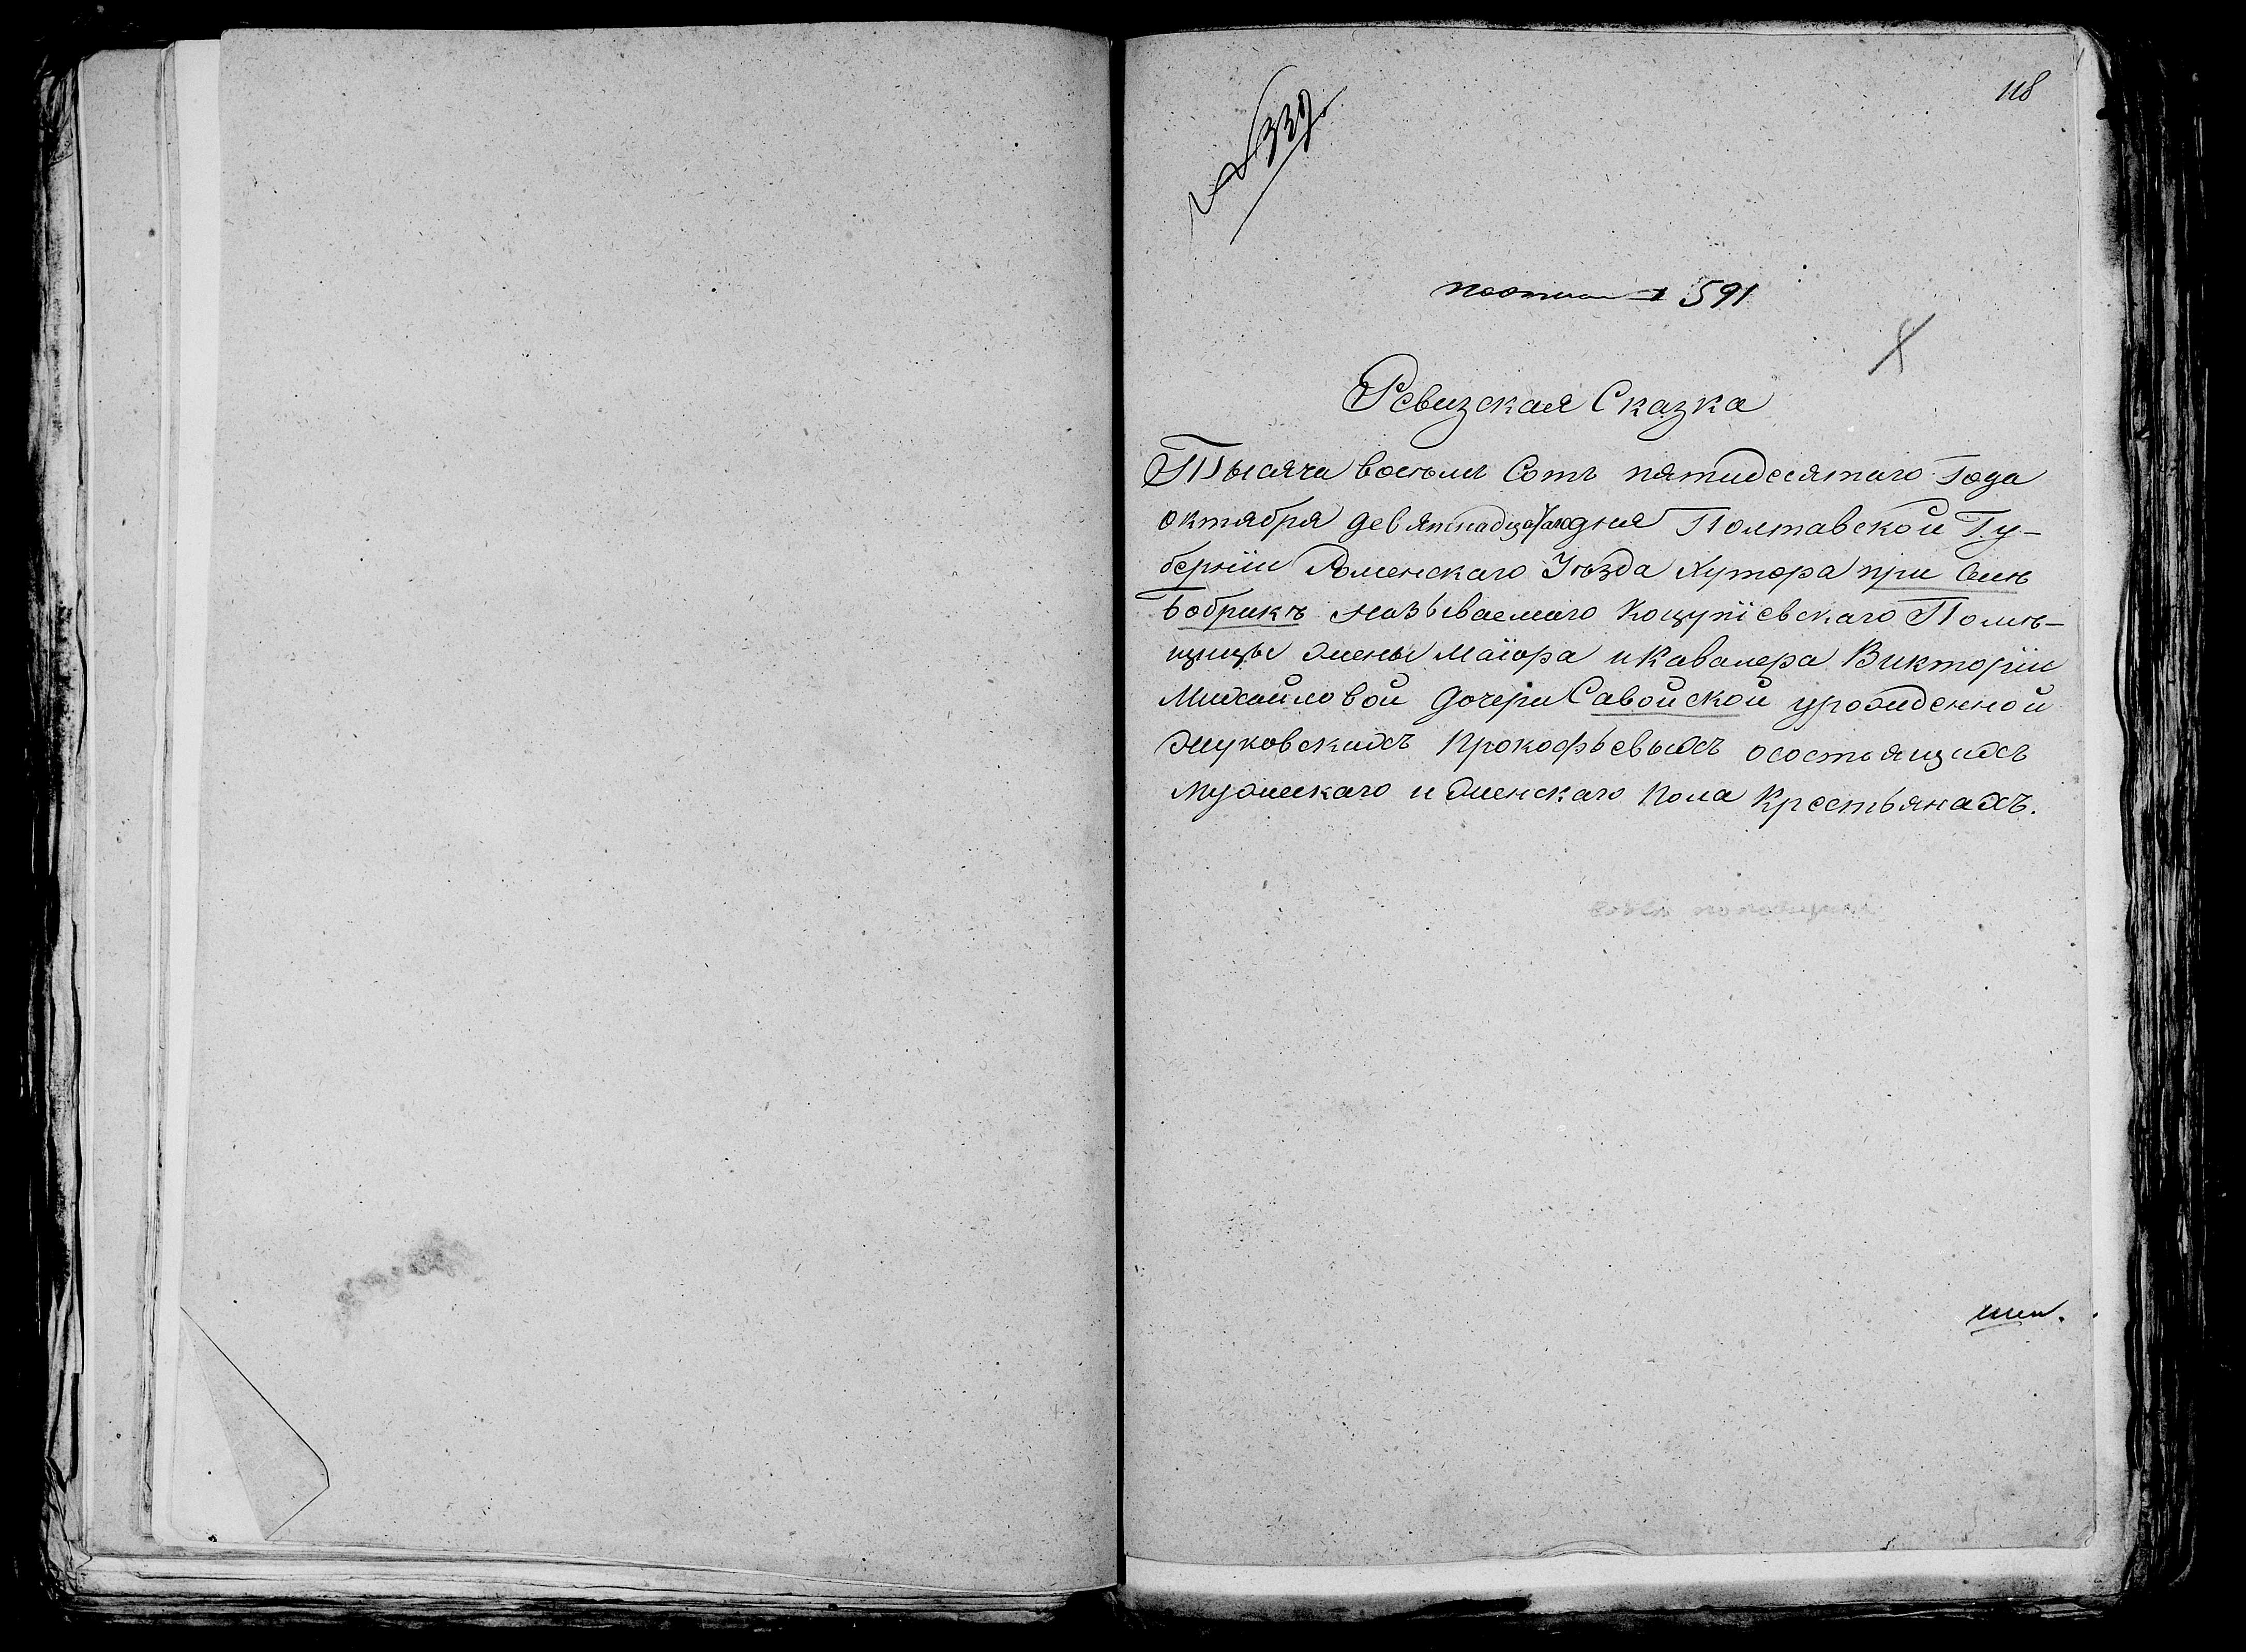 118
№ 339
591
Ревизская Сказка
Тысяча восемь Сотъ пятидесятаго Года
октября девятнадцатаго дня Полтавской Гу-
берніи Роменскаго Уѣзда Хутора при Селѣ
Бобрикѣ называемаго Коцупіевскаго Помѣ-
щицы жены Маіора и Кавалера Викторіи
Михайловой дочери Савойской урожденной
Жуковскихъ Прокофьевыхъ осостоящихъ
мужескаго и женскаго пола Крестьянахъ.